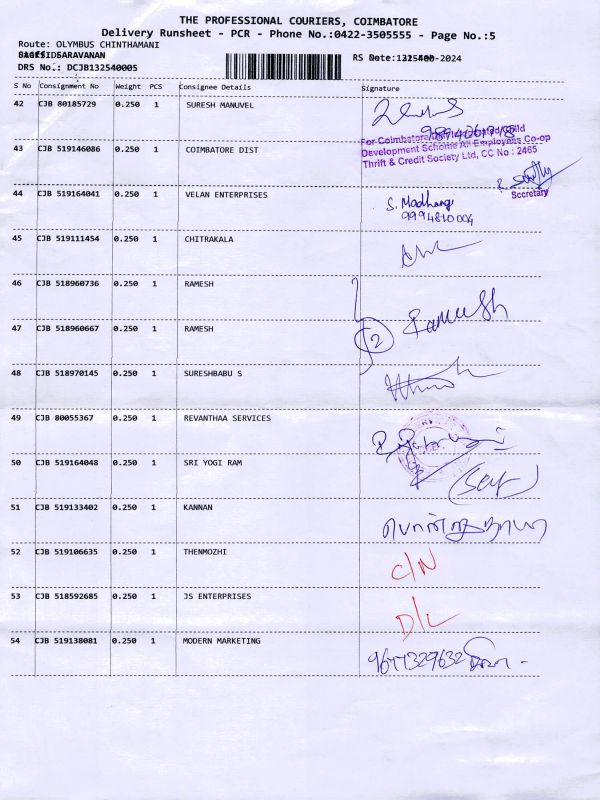 THE PROFESSIONAL COURIERS, COIMBATORE
Delivery Runsheet - PCR - Phone No.:0422-3505555 - Page No.:5
Route: OLYMBUS CHINTHAMANI
SARAVANAN
RS Date: -2024
DRS No.: DCJB132540005
S No Consignment No Weight PCS Consignee Details Signature
42 CJB 80185729 0.250 1 SURESH MANUVEL
For Coimbatore
43 CJB 519146086 0.250 1 COIMBATORE DIST
Development Scheme All Employees Co-op
Thrift & Credit Society Ltd, CC No : 2465
Secretary
44 CJB 519164041 0.250 1 VELAN ENTERPRISES
S. Madhangi
9994810004
45 CJB 519111454 0.250 1 CHITRAKALA
46 CJB 518960736 0.250 1 RAMESH
Ramesh
47 CJB 518960667 0.250 1 RAMESH
2
48 CJB 518970145 0.250 1 SURESHBABU S
49 CJB 80055367 0.250 1 REVANTHAA SERVICES
50 CJB 519164048 0.250 1 SRI YOGI RAM
51 CJB 519133402 0.250 1 KANNAN
52 CJB 519106635 0.250 1 THENMOZHI
C/N
53 CJB 518592685 0.250 1 JS ENTERPRISES
D/L
54 CJB 519138081 0.250 1 MODERN MARKETING
9677329632